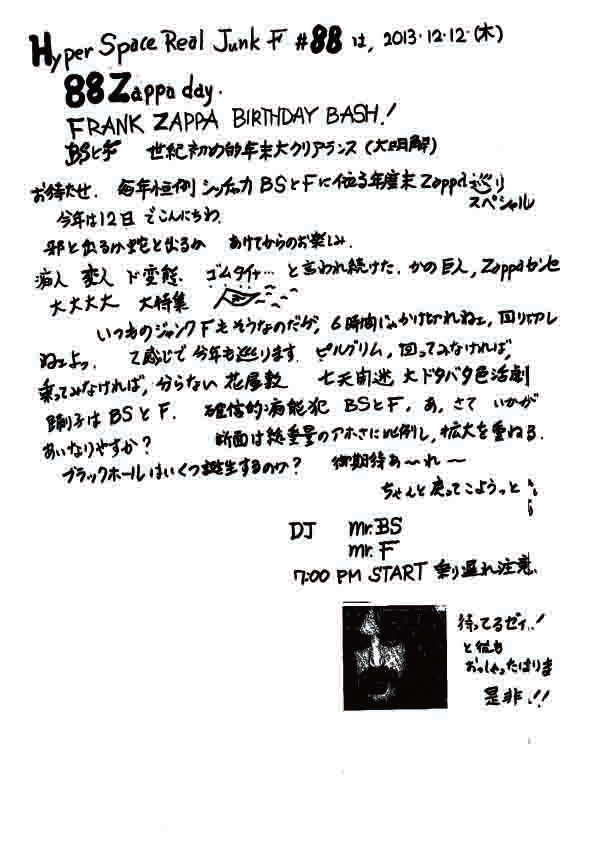 Hyper Space Real Junk F #88 は, 2013.12.12.(木)
88 Zappa day.
FRANK ZAPPA BIRTHDAY BASH!
BSとF 世紀初め的年末大クリアランス (大明解)
お待たせ. 毎年恒例 BSとFに依る年度末Zappa巡り
スペシャル
今年は12日でこんにちわ.
邪と出るか蛇と出るか あけてからのお楽しみ.
病人 変人 ド変態. ゴムタイナ… と言われ続けた. かの巨人, Zappaセンセ
大大大大 大特集
いつものジャンクFもそうなのだが, 6時間じゃかけきれねェ, 回りきれ
ねェよっ. て感じで今年も巡ります. ピルグリム, 回ってみなければ,
乗ってみなければ, 分らない花屋敷 大ドタバタ色活劇
踊り子はBSとF. 確信的病能犯 BSとF. あ, さて いかが
あいなりやすか? 断面は総重量のアホさに比例し, 拡大を重ねる.
ブラックホールはいくつ誕生するのか? 御期待あ〜れ〜
ちゃんと戻ってこようっと
DJ Mr. BS
Mr. F
7:00 PM START 乗り遅れ注意.
待ってるゼィ.!
と彼も
おっしゃったはりま
是非.!!